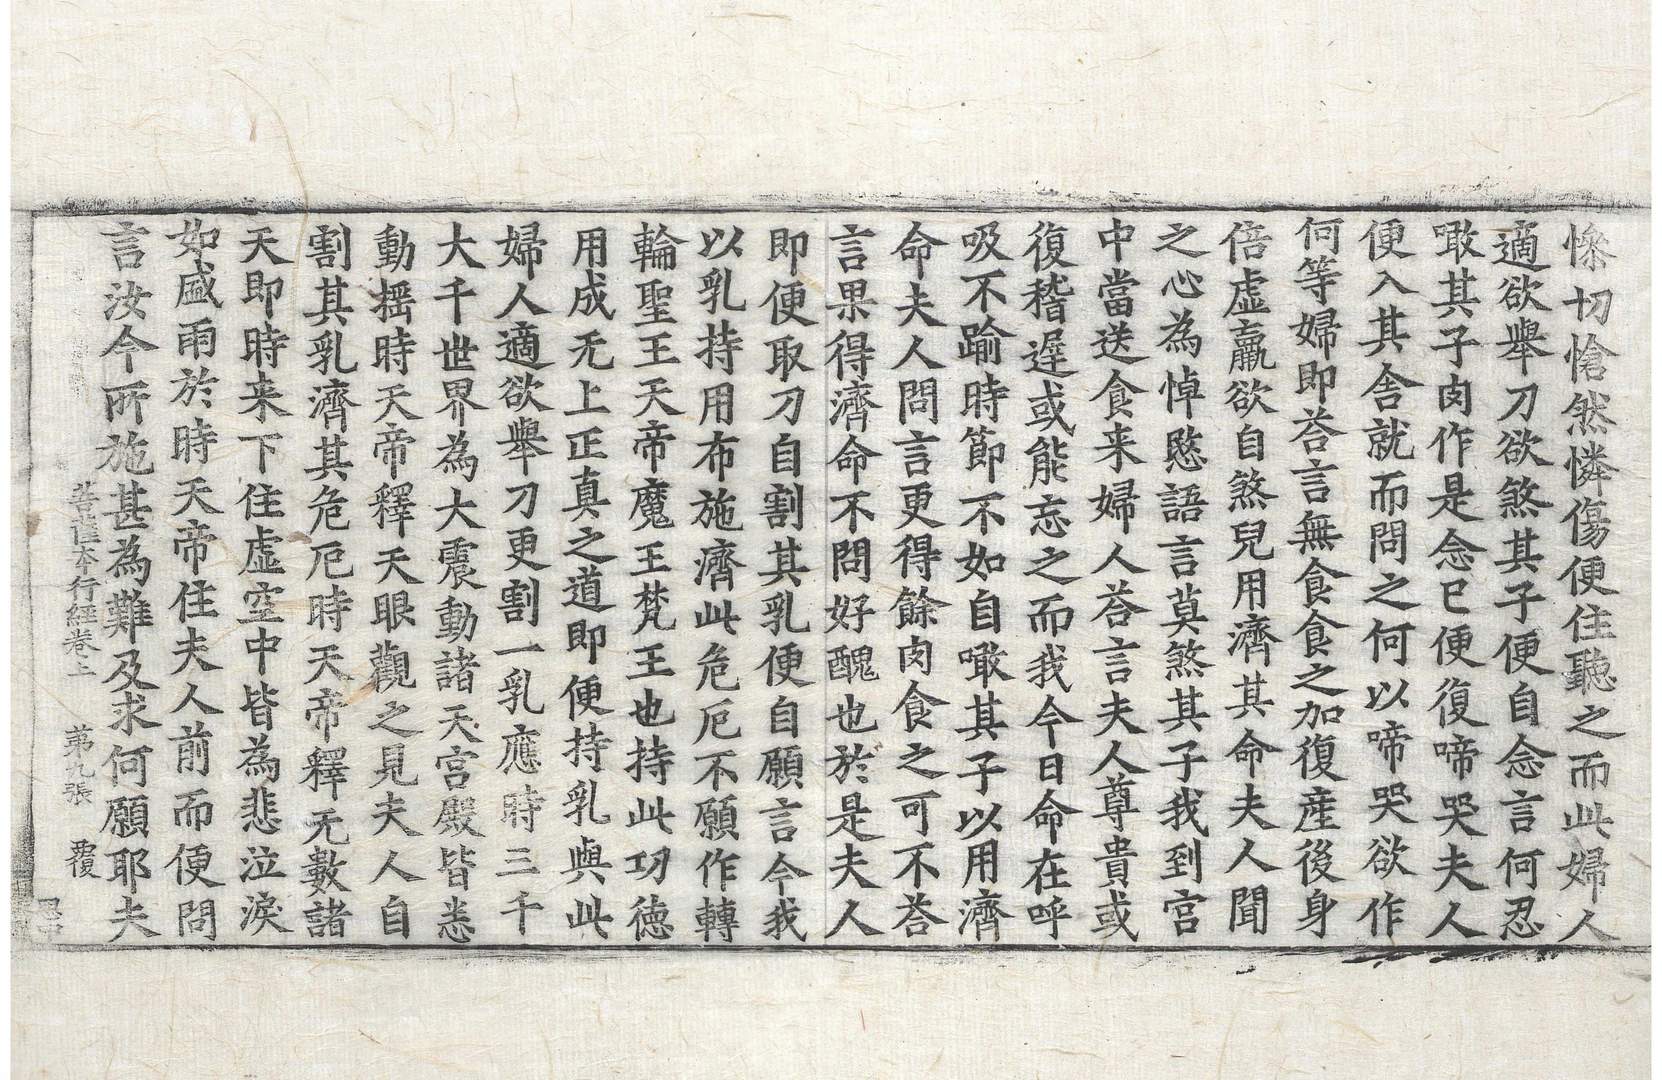 慘切愴然憐傷便住聽之而此婦人
適欲舉刀欲煞其子便自念言何忍
噉其子肉作是念已便復啼哭夫人
便入其舍就而問之何以啼哭欲作
何等婦即荅言無食食之加復產後身
倍虛羸欲自煞兒用濟其命夫人聞
之心為悼愍語言莫煞其子我到宮
中當送食来婦人荅言夫人尊貴或
復稽遲或能忘之而我今日命在呼
吸不踰時節不如自噉其子以用濟
命夫人問言更得餘肉食之可不荅
言果得濟命不問好醜也於是夫人
即便取刀自割其乳便自願言今我
以乳持用布施濟此危厄不願作轉
輪聖王天帝魔王梵王也持此功德
用成无上正真之道即便持乳與此
婦人適欲舉刀更割一乳應時三千
大千世界為大震動諸天宮殿皆悉
動揺時天帝釋天眼觀之見夫人自
割其乳濟其危厄時天帝釋无數諸
天即時来下住虛空中皆為悲泣淚
如盛雨於時天帝住夫人前而便問
言汝今所施甚為難及求何願耶夫
菩薩本行經卷上 第九張 覆